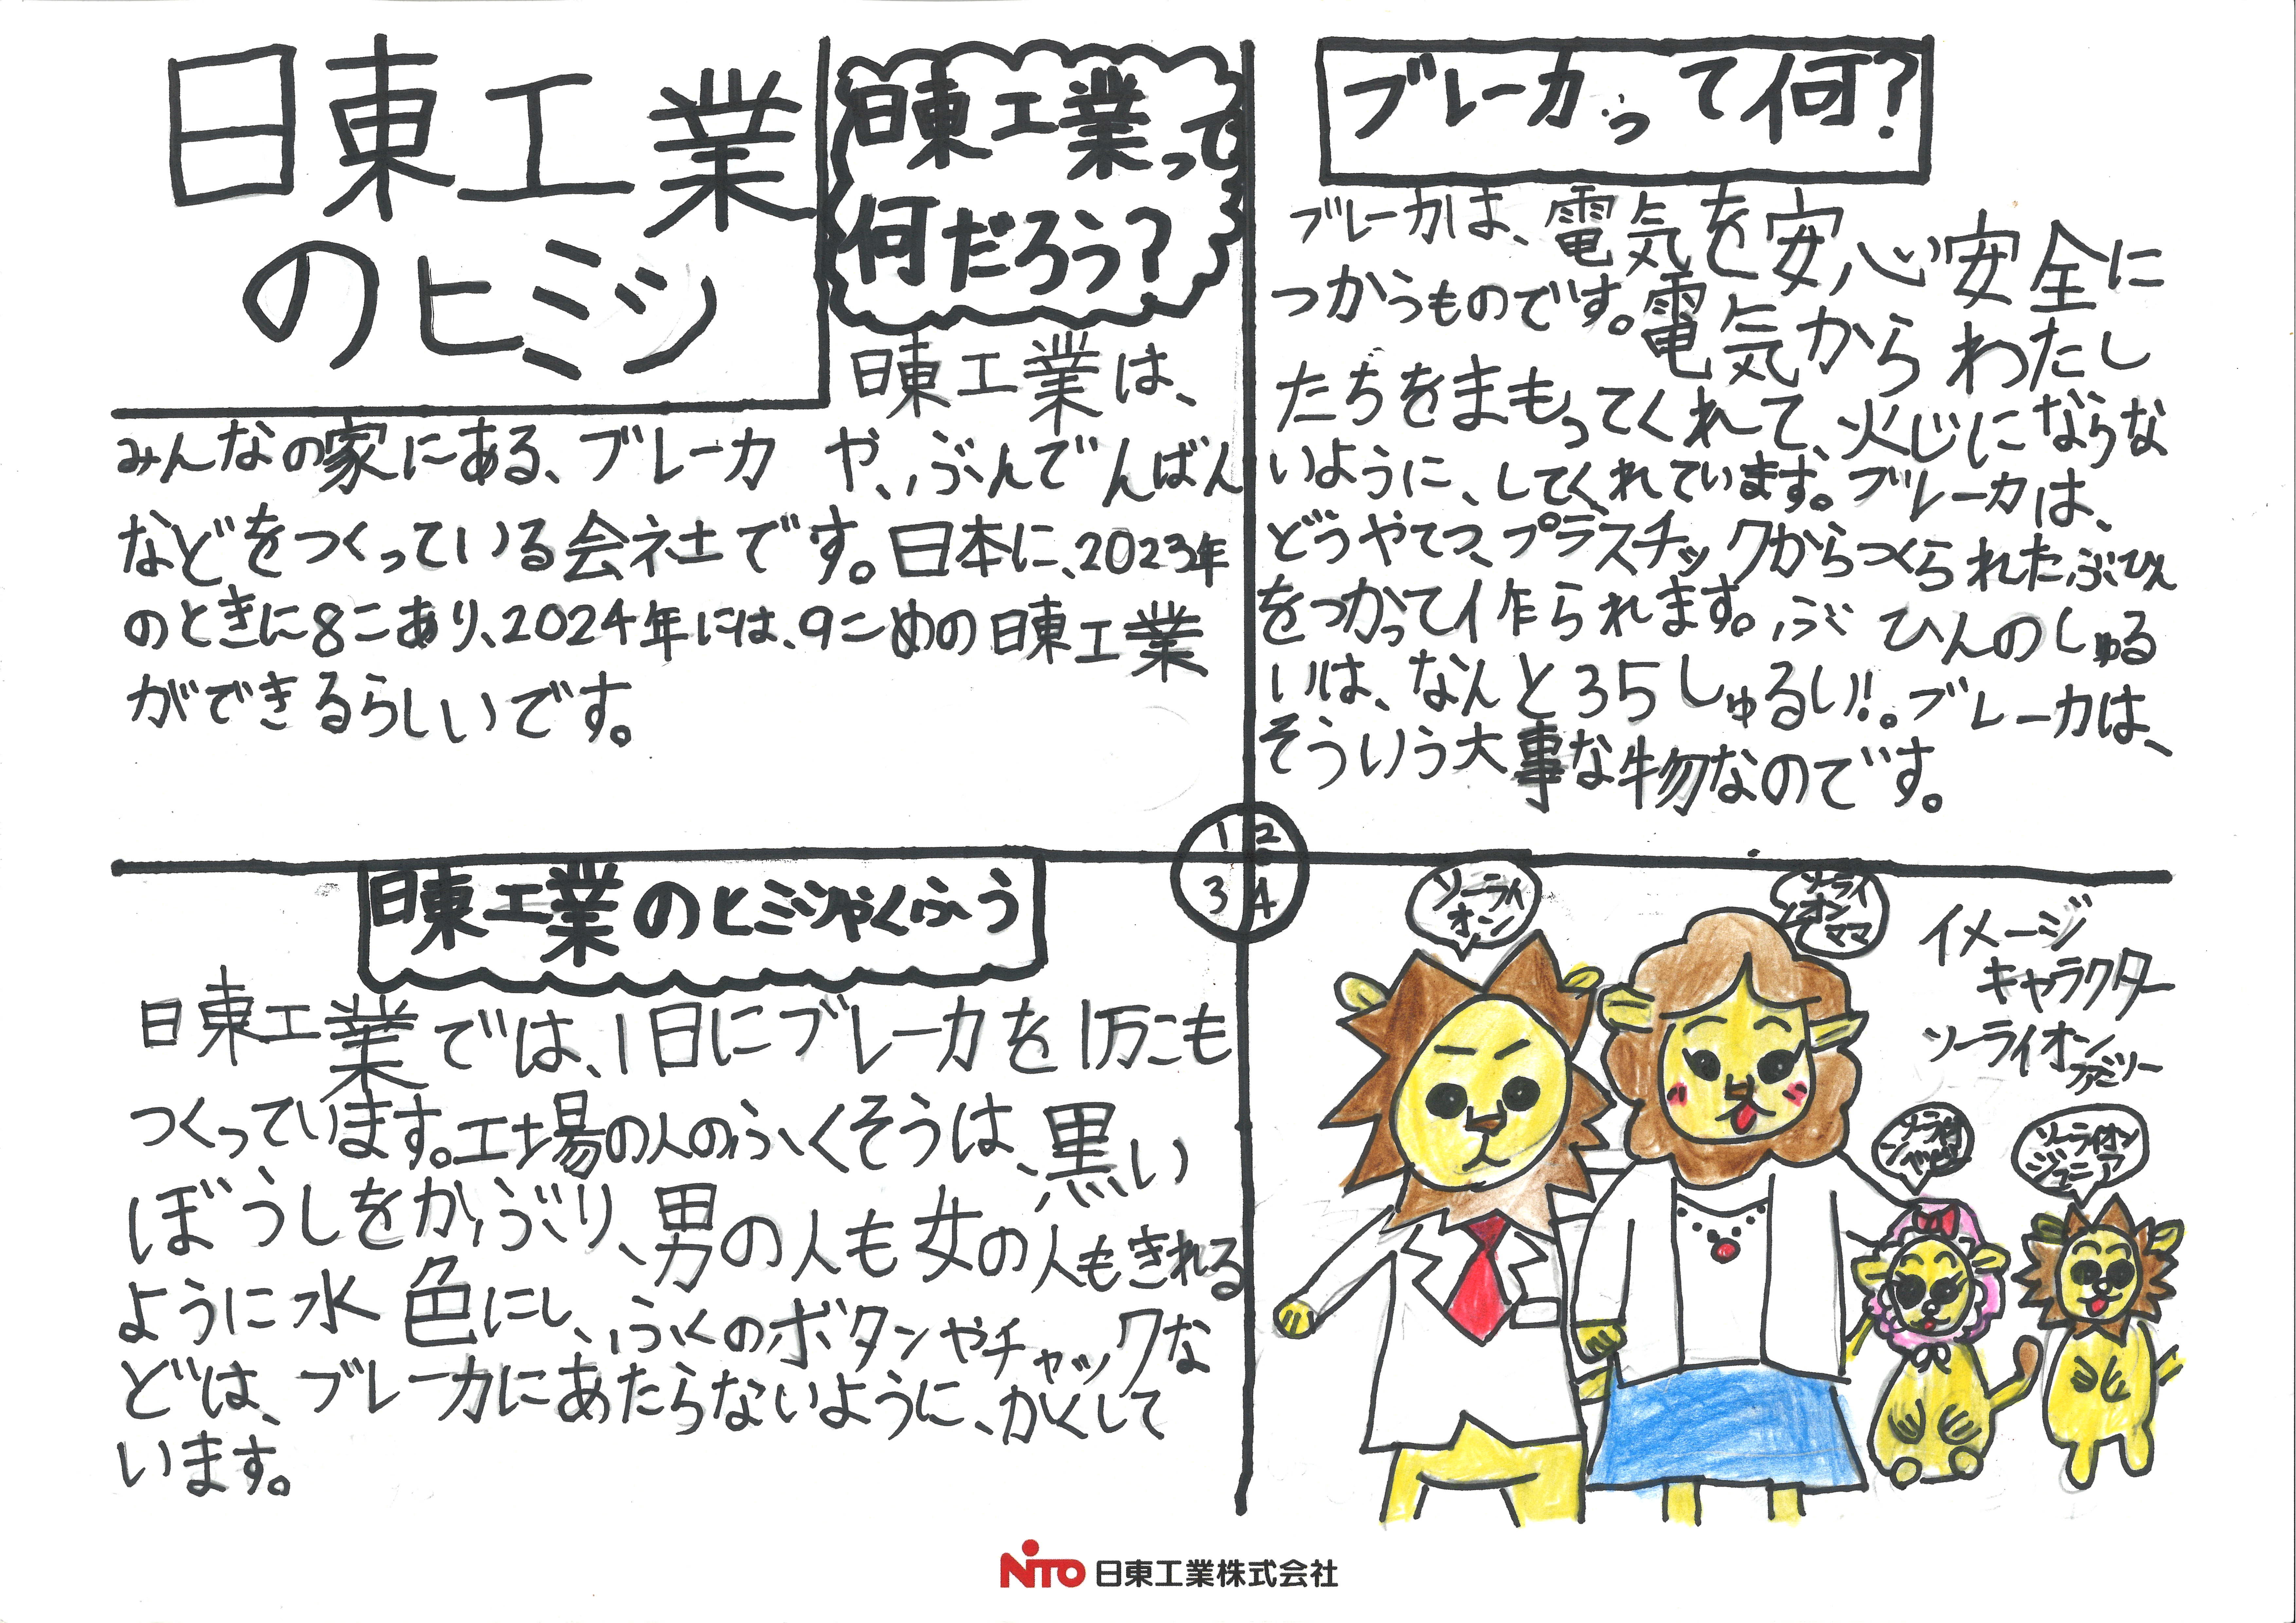 日東工業
のヒミツ
日東工業って
何だろう?
日東工業は、
みんなの家にある、ブレーカ や、ぶんでんばん
などをつくっている会社です。日本に、2023年
のときに8こあり、2024年には、9こめの日東工業
ができるらしいです。
ブレーカって何?
ブレーカは、電気を安心安全に
つかうものです。電気からわたし
たちをまもってくれて、火じにならな
いように、してくれています。ブレーカは、
どうやてつ、プラスチックからつくられたぶひん
をつかって作られます。ぶひんのしゅる
いは、なんと35しゅるい!。ブレーカは、
そういう大事な物なのです。
1 2
3 4
日東工業のヒミツやくふう
日東工業では、1日にブレーカを1万こも
つくっています。工場の人のふくそうは、黒い
ぼうしをかぶり、男の人も女の人もきれる
ように水色にし、ふくのボタンやチャックな
どは、ブレーカにあたらないように、かくして
います。
ソーライ
オン
ソーライ
オン
ママ
イメージ
キャラクター
ソーライオン
ファミリー
ソーライオン
ジュニア
NiTO 日東工業株式会社